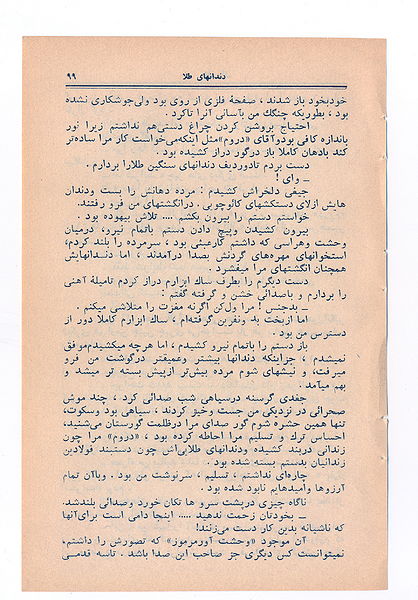 دندانهای طلا ۹۹
خودبخود باز شدند ، صفحهٔ فلزی از روی بود ولی‌جوشکاری نشده
بود ، بطوریکه چنگک من بآسانی آنرا تاکرد .
احتیاج بروشن کردن چراغ دستی‌هم نداشتم زیرا نور
باندازه کافی بودوآقای «دروم»مثل اینکه‌می‌خواست کار مرا ساده‌تر
کند بادهان کاملا باز درگور دراز کشیده بود .
دست بردم تادوردیف دندانهای سنگین طلارا بردارم .
ـ وای !
جیغی دلخراش کشیدم : مرده دهانش را بست ودندان
هایش ازلای دستکشهای کائوچویی . درانگشتهای من فرو رفتند.
خواستم دستم را بیرون بکشم .... تلاش بیهوده بود .
بیرون کشیدن وپیچ دادن دستم باتمام نیرو، درمیان
وحشت وهراسی که داشتم کارعبثی بود ، سرمرده را بلند کردم،
استخوانهای مهره‌های گردنش بصدا درآمدند ، اما دندانهایش
همچنان انگشتهای مرا میفشرد .
دست دیگرم را بطرف ساك ابزارم دراز کردم تامیلهٔ آهنی
را بردارم و باصدائی خشن و گرفته گفتم :
ـ بدجنس ! مرا ول‌کن اگرنه مغزت را متلاشی میکنم .
اما ازبخت بد ونفرین گرفته‌ام ، ساك ابزارم کاملا دور از
دسترس من بود .
باز دستم را باتمام نیرو کشیدم ، اما هرچه میکشیدم‌موفق
نمیشدم ، جزاینکه دندانها بیشتر وعمیقتر درگوشت من فرو
میرفت، و نیشهای شوم مرده بیش‌تر ازپیش بسته تر میشد و
بهم میآمد .
جغدی گرسنه درسیاهی شب صدائی کرد ، چند موش
صحرائی در نزدیکی من جست وخیز کردند ، سیاهی بود وسکوت،
تنها همین حشره شوم گور صدای مرا درظلمت گورستان می‌شنید،
احساس ترك و تسلیم مرا احاطه کرده بود ، «دروم» مرا چون
زندانی دربند کشیده ودندانهای طلایی‌اش چون دستبند فولادین
زندانیان بدستم بسته شده بود .
چاره‌ای نداشتم ، تسلیم ، سرنوشت من بود . وباآن تمام
آرزوها وامیدهایم نابود شده بود .
ناگاه چیزی درپشت سرو ها تکان خورد وصدائی بلندشد.
ـ بخودتان زحمت ندهید ..... اینجا دامی است برای‌آنها
که ناشیانه بدین کار دست می‌زنند!
آن موجود «وحشت آورمرموز» که تصورش را داشتم،
نمیتوانست کس دیگری جز صاحب این صدا باشد. تاسه قدمی